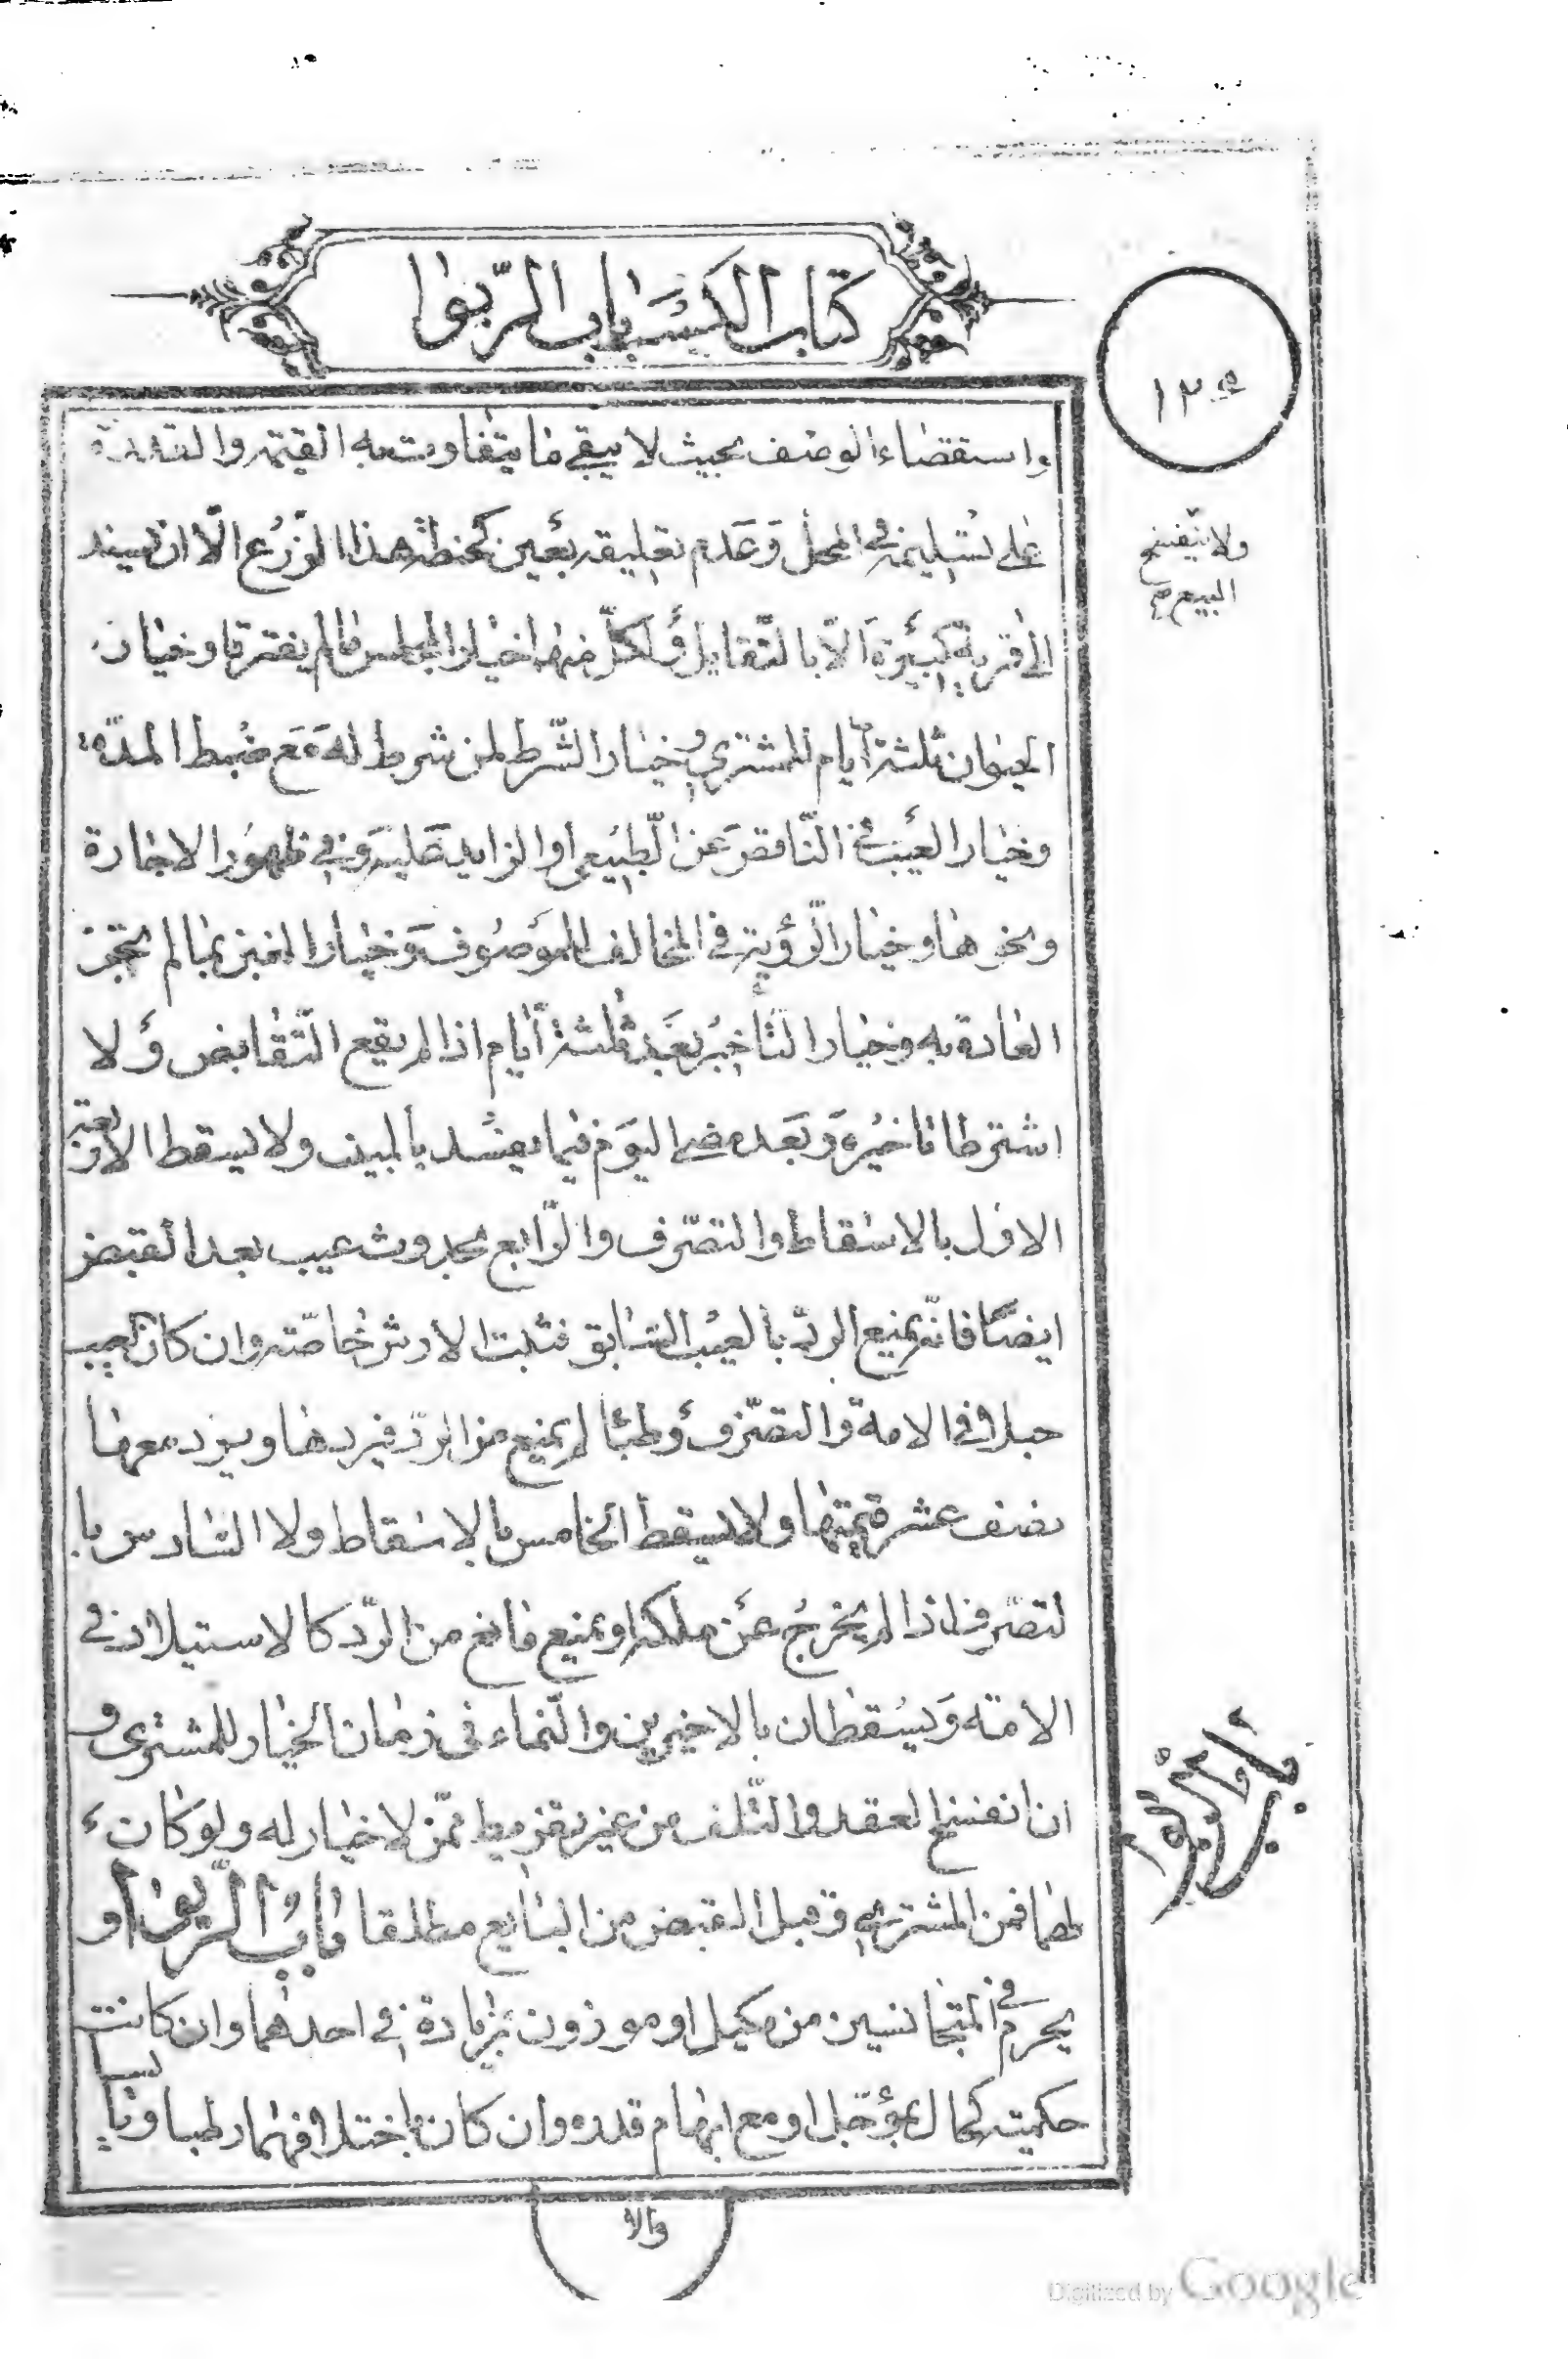 كتاب الكسب باب الربوا
١٣٥
واستقصاء الوصف بحيث لا يبقى ما يتفاوت به القيمة والقدرة
على تسليمه في المحل وعدم تعليقه بعين كحنطة هذا الزرع الا ان يسند
الى قرية كبيرة الا بالتقايل ولكل منهما خيار المجلس ما لم يفترقا وخيار
ولا ينفسخ
البيع صح
الحيوان ثلثة ايام للمشتري وخيار الشرط لمن شرط له مع ضبط المدة
وخيار العيب في الناقص عن الطبيعي او الزايد عليه وفي ظهور الاجارة
ونحوها وخيار الرؤية في المخالف للموصوف وخيار الغبن بما لم تجر
العادة به وخيار التأخير بعد ثلثة ايام اذا لم يقع التقابض ولا
اشترطا تاخيره وبعد مضي اليوم فيما يفسد بالمبيت ولا يسقط الارش بغير
الاول بالاسقاط والتصرف والرابع بحدوث عيب بعد القبض
ايضا فانه يمنع الرد بالعيب السابق فثبت الارش خاصة وان كان العيب
حبلا في الامة والتصرف وطئا لم يمنع من الرد فيردها ويرد معها
نصف عشر قيمتها ولا يسقط الخامس بالاسقاط ولا السادس با
لتصرف اذا لم يخرج عن ملكه او يمنع مانع من الرد كالاستيلاد في
الامة ويسقطان بالاخيرين والنماء في زمان الخيار للمشتري و
ان انفسخ العقد والتلف من غير تفريط ممن لا خيار له ولو كان
لهما فمن المشتري وقبل القبض من البايع مطلقا باب الربوا و
يحرم في المتجانسين من مكيل او موزون بزيادة في احدهما وان كانت
حكمية كحال بمؤجل او مع ابهام قدره وان كان باختلافهما رطبا ويابسا
والا
Digitized by Google